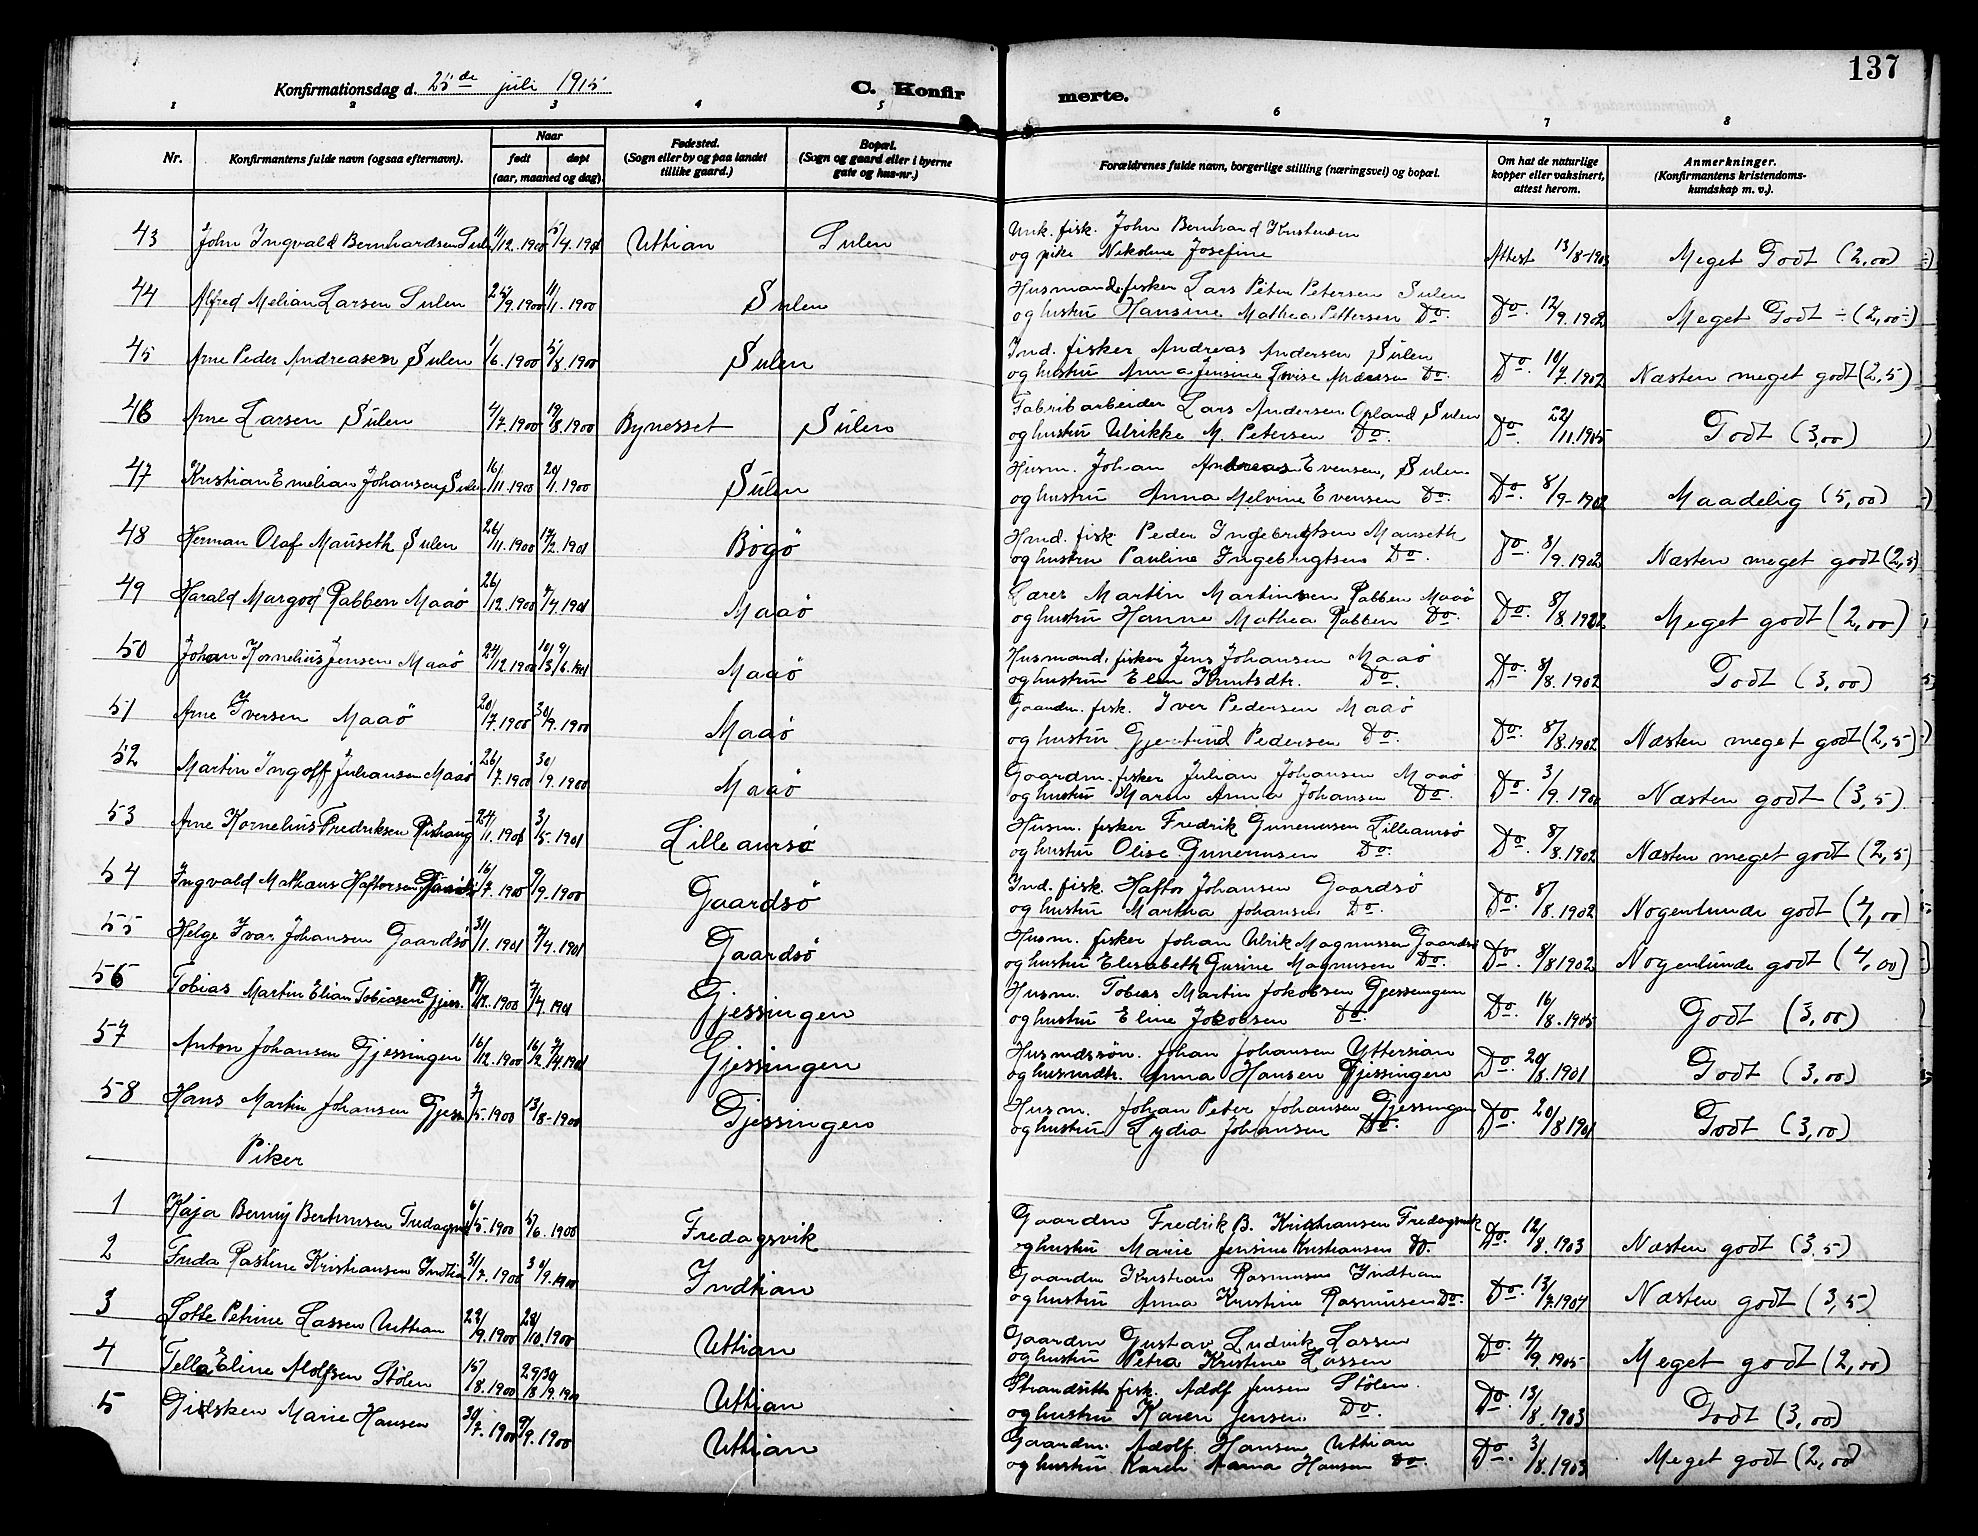 137
Konfirmationsdag d. 25de juli 1915
C. Konfirmerte.
1 2 3 4 5 6 7 8
Nr.
Konfirmantens fulde navn (ogsaa efternavn).
Naar
født døpt
(aar, maaned og dag).
Fødested.
(Sogn eller by og paa landet
tillike gaard.)
Bopæl.
(Sogn og gaard eller i byerne
gate og hus-nr.)
Forældrenes fulde navn, borgerlige stilling (næringsvei) og bopæl.
Om hat de naturlige
kopper eller vaksinert,
attest herom.
Anmerkninger.
(Konfirmantens kristendoms-
kundskap m. v.).
43 John Ingvald Bernhardsen Sulen 11/12.1900 5/4.1901 Uttian Sulen Unk. fisk. John Bernhard Kristensen
og pike Nikoline Josefine Attest 13/8-1903 Meget Godt (2,00)
44 Alfred Melian Larsen Sulen 25/9.1900 11/1.1900 Sulen Husmand, fisker Lars Peter Petersen Sulen
og hustru Hansine Mathea Pettersen Do. Do. 12/9.1902 Meget Godt ÷ (2,00÷)
45 Arne Peder Andreasen Sulen 1/6.1900 5/8.1900 Sulen Ind. fisker Andreas Andersen Sulen
og hustru Anna Jensine Lovise Andersen Do. Do. 10/7.1902 Næsten meget godt (2,5)
46 Arne Larsen Sulen 4/7.1900 19/8.1900 Bynesset Sulen Fabrikarbeider Lars Andersen Opland Sulen
og hustru Ulrikke M. Petersen Do. Do. 22/11.1905 Godt (3,00)
47 Kristian Emelian Johansen Sulen 16/11.1900 20/1.1900 Sulen Husm. Johan Andreas Evensen, Sulen
og hustru Anna Melvine Evensen Do. Do. 8/9-1902 Maadelig (5,00)
48 Herman Olaf Mauseth Sulen 26/11.1900 17/2.1901 Bogö Hmd. fisk. Peder Ingebrigtsen Mauseth
og hustru Pauline Ingebrigtsen Do. Do. 8/9.1902 Næsten meget godt (2,5)
49 Harald Margod Rabben Maaö 26/12.1900 7/4.1901 Maaö Lærer Martin Martinsen Rabben Maaö
og hustru Hanne Mathea Rabben Do. Do. 8/8.1902 Meget godt (2,00)
50 Johan Kornelius Jensen Maaö 24/12.1900 10/3 9/6.1901 Maaö Husmand, fisker Jens Johansen Maaö
og hustru Elen Knutsdtr. Do. Do. 8/8.1902 Godt (3,00)
51 Arne Iversen Maaö 20/7.1900 30/9.1900 Maaö Gaardm. fisk. Iver Pedersen Maaö
og hustru Gjertrud Pedersen Do. Do. 8/8.1902 Næsten meget godt (2,5)
52 Martin Ingolf Julian­sen Maaö 26/7.1900 30/9.1900 Maaö Gaardm. fisker Julian Johansen Maaö
og hustru Maren Anna Johansen Do. Do. 3/9.1900 Næsten godt (3,5)
53 Arne Kornelius Fredriksen Rishaug 24/1.1901 3/5.1901 Lilleaursö Husm. fisker Fredrik Gunerusen Lilleaursö
og hustru Olise Gunerusen Do. Do. 8/8.1902 Næsten meget godt (2,5)
54 Ingvald Mathæus Haftorsen 16/7.1900 9/9.1900 Gaardsö Ind. fisk. Haftor Johansen Gaardsö
og hustru Martha Johansen Do. Do. 8/8.1902 Nogenlunde godt (4,00)
55 Helge Ivar Johansen Gaardsö 31/1.1901 7/4.1901 Gaardsö Husm. fisker Johan Ulrik Magnussen Gaardsö
og hustru Elisabeth Gurine Magnusen Do. Do. 8/8 1902 Nogenlunde godt (4,00)
56 Tobias Martin Elian Tobiasen Gjess. 19/12.1900 7/4 1901 Gjessingen Husm. Tobias Martin Jakobsen Gjessingen
og hustru Eline Jakobsen Do. Do. 16/8.1905 Godt (3,00)
57 Anton Johansen Gjessingen 16/12.1900 16/12 7/4 1901 Gjessingen Husmdssøn. Johan Johansen Yttersian
og husmdtr. Anna Hansen Gjessingen Do. 20/8.1901 Godt (3,00)
58 Hans Martin Johansen Gjess 7/5.1900 13/8-1900 Gjessingen Husm. Johan Peter Johansen Gjessingen
og hustru Lydia Johansen Do. Do. 20/8 1901 Godt (3,00)
Piker
1 Kaja Berntsen Fredagsvik 6/5.1900 5/6.1900 Fredagsvik Gaardm Fredrik B. Kristiansen Fredagsvik
og hustru Marie Jensine Kristiansen Do. Do. 12/8.1903 Næsten godt (3,5)
2 Frida Pastine Kristiansen Indtian 31/7.1900 30/9.1900 Indtian Gaardm Kristian Rasmusen Indtian
og hustru Anna Kristine Rasmusen Do. Do. 13/7.1904 Næsten godt (3,5)
3 Lotte Petrine Lassen Uttian 22/9.1900 28/10.1900 Uttian Gaardm Gustav Ludvik Lassen
og hustru Petra Kristine Lassen Do. 4/9.1905 Meget godt (2,00)
4 Tella Eline Adolfsen Stölen 15/8.1900 29/8 30/9.1900 Uttian Strandsitt. fisk. Adolf Jensen Stölen.
og hustru Karen Jensen Do. Do. 13/8.1903 Godt (3,00)
5 Gidsken Marie Hansen 30/7.1900 9/9.1900 Uttian Gaardm. Adolf Hansen Uttian
og hustru Karen Anna Hansen Do. Do. 3/8.1903 Meget godt (2,00